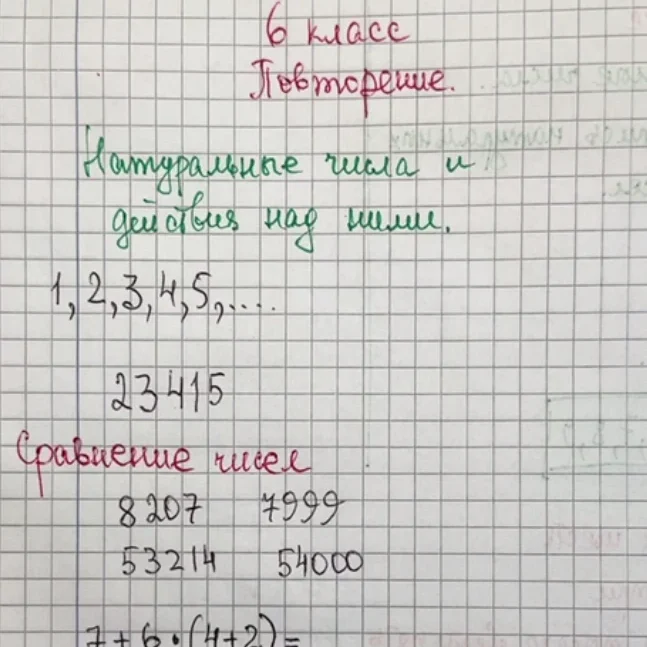 6 класс
Повторение.
Натуральные числа и
действия над ними.
1, 2, 3, 4, 5, ....
23 415
Сравнение чисел
8 207 7999
53214 54000
7 + 6 · (4+2) =